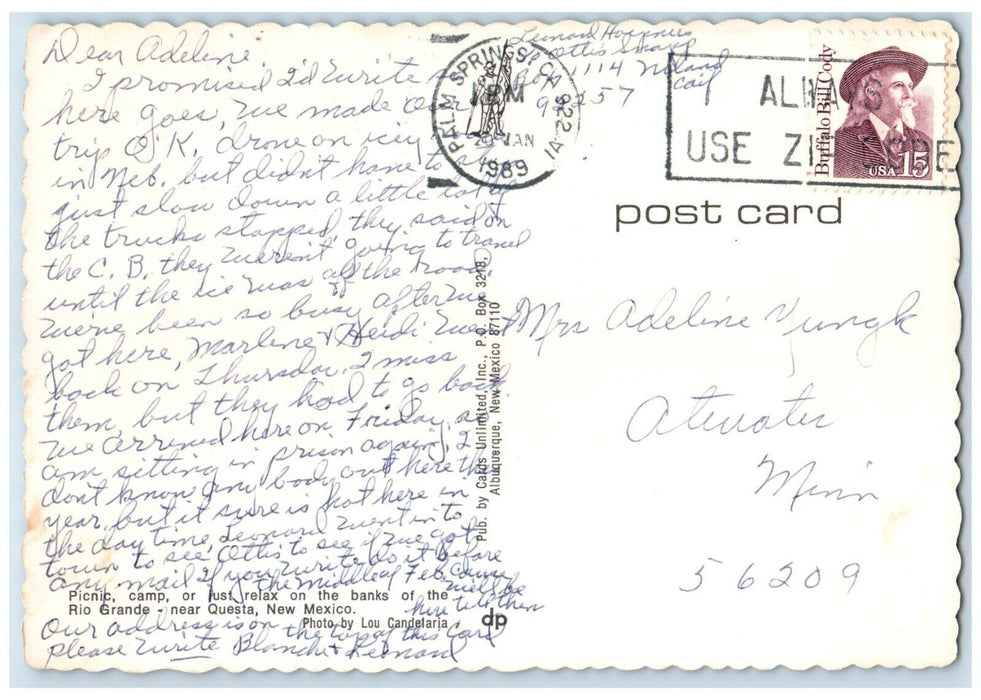 Dear Adeline,
I promised I'd write so
here goes, we made our
trip O.K. drove on icy
in Neb. but didn't have to
just slow down a little
the trucks stopped, they said on
the C. B. they weren't going to travel
until the ice was off the road.
been so busy after we
got here, Marlene & Heidi went
back on Thursday. I miss
them, but they had to go back
we arrived here on Friday, so
am sitting in prison again, I
don't know any body out here this
year, but it sure is hot here in
the day time, Leonard went in to
town to see Ottis to see if we got
any mail. If you write do it before
the middle of Feb. cause
we'll be
here till then
Our address is on the top of this card
please write Blanche & Leonard
Leonard
Ottis
Box 1114
92257
PALM SPRINGS, CA 922
PM
29 JAN
1989
I ALWAYS
USE ZIP CODE
Buffalo Bill Cody
USA 15
post card
Mrs Adeline Yungk
Atwater
Minn
56209
Pub. by Cards Unlimited, Inc., P.O. Box 3218,
Albuquerque, New Mexico 87110
Picnic, camp, or just relax on the banks of the
Rio Grande - near Questa, New Mexico.
Photo by Lou Candelaria
dp